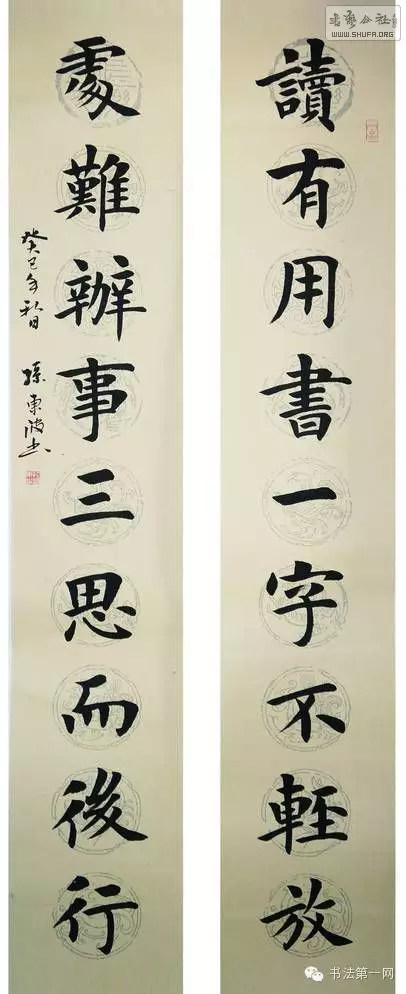 讀有用書一字不輕放
處難辦事三思而後行
癸巳年秋日 孫東波書
書藝公社
WWW.SHUFA.ORG
书法第一网